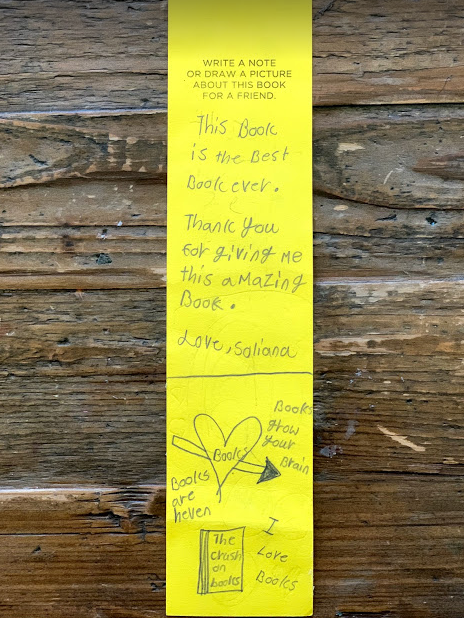 WRITE A NOTE
OR DRAW A PICTURE
ABOUT THIS BOOK
FOR A FRIEND.
This Book
is the Best
Book ever.
Thank you
for giving me
this aMaZing
Book.
Love, Soliana
Books
grow
your
Brain
Books
Books
are
heven
The
crush
on
books
I
Love
Books